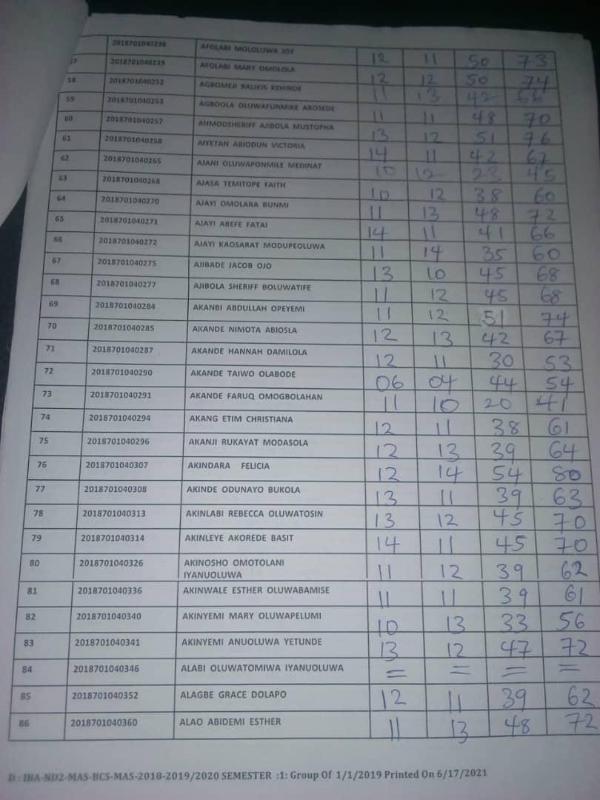 2018701040238 AFOLABI MOLOLUWA JOY 12 11 50 73
57 2018701040239 AFOLABI MARY OMOLOLA 12 12 50 74
58 2018701040252 AGBOMEJI BALIKIS KEHINDE 11 13 42 66
59 2018701040253 AGBOOLA OLUWAFUNMIKE ABOSEDE 11 11 48 70
60 2018701040257 AHMODSHERIFF AJIBOLA MUSTOPHA 13 12 51 76
61 2018701040258 AIYETAN ABIODUN VICTORIA 14 11 42 67
62 2018701040265 AJANI OLUWAPONMILE MEDINAT 10 12 23 45
63 2018701040268 AJASA TEMITOPE FAITH 10 12 38 60
64 2018701040270 AJAYI OMOLARA BUNMI 11 13 48 72
65 2018701040271 AJAYI ABEFE FATAI 14 11 41 66
66 2018701040272 AJAYI KAOSARAT MODUPEOLUWA 11 14 35 60
67 2018701040275 AJIBADE JACOB OJO 13 10 45 68
68 2018701040277 AJIBOLA SHERIFF BOLUWATIFE 11 12 45 68
69 2018701040284 AKANBI ABDULLAH OPEYEMI 11 12 51 74
70 2018701040285 AKANDE NIMOTA ABIOSLA 12 13 42 67
71 2018701040287 AKANDE HANNAH DAMILOLA 12 11 30 53
72 2018701040290 AKANDE TAIWO OLABODE 06 04 44 54
73 2018701040291 AKANDE FARUQ OMOGBOLAHAN 11 10 20 41
74 2018701040294 AKANG ETIM CHRISTIANA 12 11 38 61
75 2018701040296 AKANJI RUKAYAT MODASOLA 12 13 39 64
76 2018701040307 AKINDARA FELICIA 12 14 54 80
77 2018701040308 AKINDE ODUNAYO BUKOLA 13 11 39 63
78 2018701040313 AKINLABI REBECCA OLUWATOSIN 13 12 45 70
79 2018701040314 AKINLEYE AKOREDE BASIT 14 11 45 70
80 2018701040326 AKINOSHO OMOTOLANI
IYANUOLUWA 11 12 39 62
81 2018701040336 AKINWALE ESTHER OLUWABAMISE 11 11 39 61
82 2018701040340 AKINYEMI MARY OLUWAPELUMI 10 13 33 56
83 2018701040341 AKINYEMI ANUOLUWA YETUNDE 13 12 47 72
84 2018701040346 ALABI OLUWATOMIWA IYANUOLUWA = = = =
85 2018701040352 ALAGBE GRACE DOLAPO 12 11 39 62
86 2018701040360 ALAO ABIDEMI ESTHER 11 13 48 72
D : IBA-ND2-MAS-BCS-MAS-2018-2019/2020 SEMESTER :1: Group Of 1/1/2019 Printed On 6/17/2021